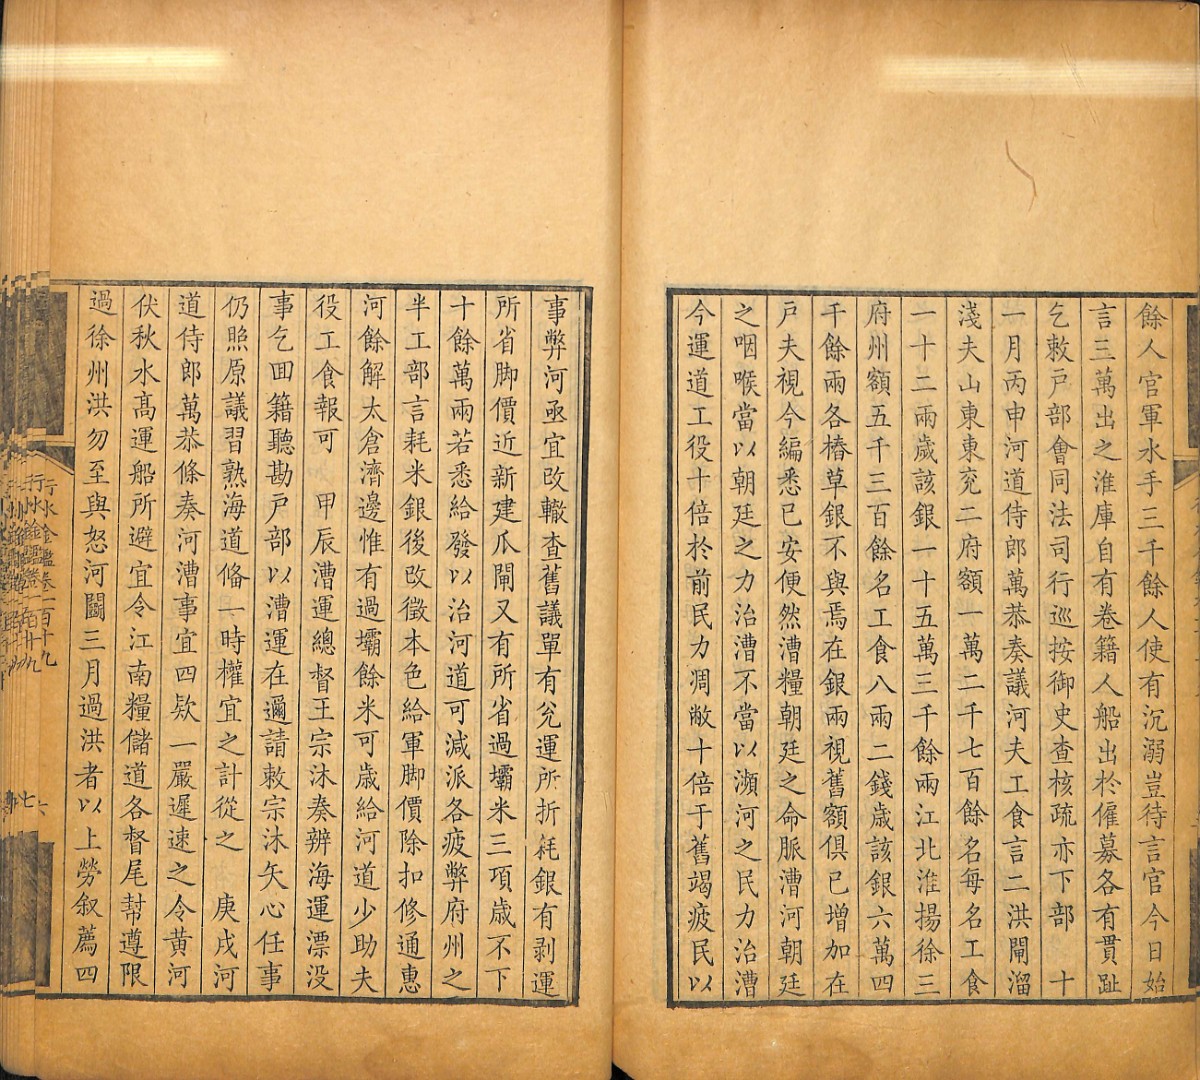 餘人官軍水手三千餘人使有沉溺豈待言官今日始
言三萬出之淮庫自有卷籍人船出於僱募各有貫趾
乞敕戸部會同法司行巡按御史查核疏亦下部　十
一月丙申河道侍郎萬恭奏議河夫工食言二洪閘溜
淺夫山東東兖二府額一萬二千七百餘名每名工食
一十二兩歲該銀一十五萬三千餘兩江北淮揚徐三
府州額五千三百餘名工食八兩二錢歲該銀六萬四
千餘兩各樁草銀不與焉在銀兩視舊額俱已增加在
戸夫視今編悉已安便然漕糧朝廷之命脈漕河朝廷
之咽喉當以朝廷之力治漕不當以瀕河之民力治漕
今運道工役十倍於前民力凋敝十倍于舊竭疲民以
事弊河亟宜改轍查舊議單有兊運所折耗銀有剥運
所省脚價近新建瓜閘又有所省過壩米三項歲不下
十餘萬兩若悉給發以治河道可減派各疲弊府州之
半工部言耗米銀後改徵本色給軍脚價除扣修通惠
河餘解太倉濟邊惟有過壩餘米可歲給河道少助夫
役工食報可　甲辰漕運總督王宗沐奏辨海運漂没
事乞回籍聽勘戸部以漕運在邇請敕宗沐矢心任事
仍照原議習熟海道俻一時權宜之計從之　庚戌河
道侍郎萬恭條奏河漕事宜四欵一嚴遲速之令黄河
伏秋水髙運船所避宜令江南糧儲道各督尾幇遵限
過徐州洪勿至與怒河鬭三月過洪者以上勞叙薦四
行水金鑑卷一百十九